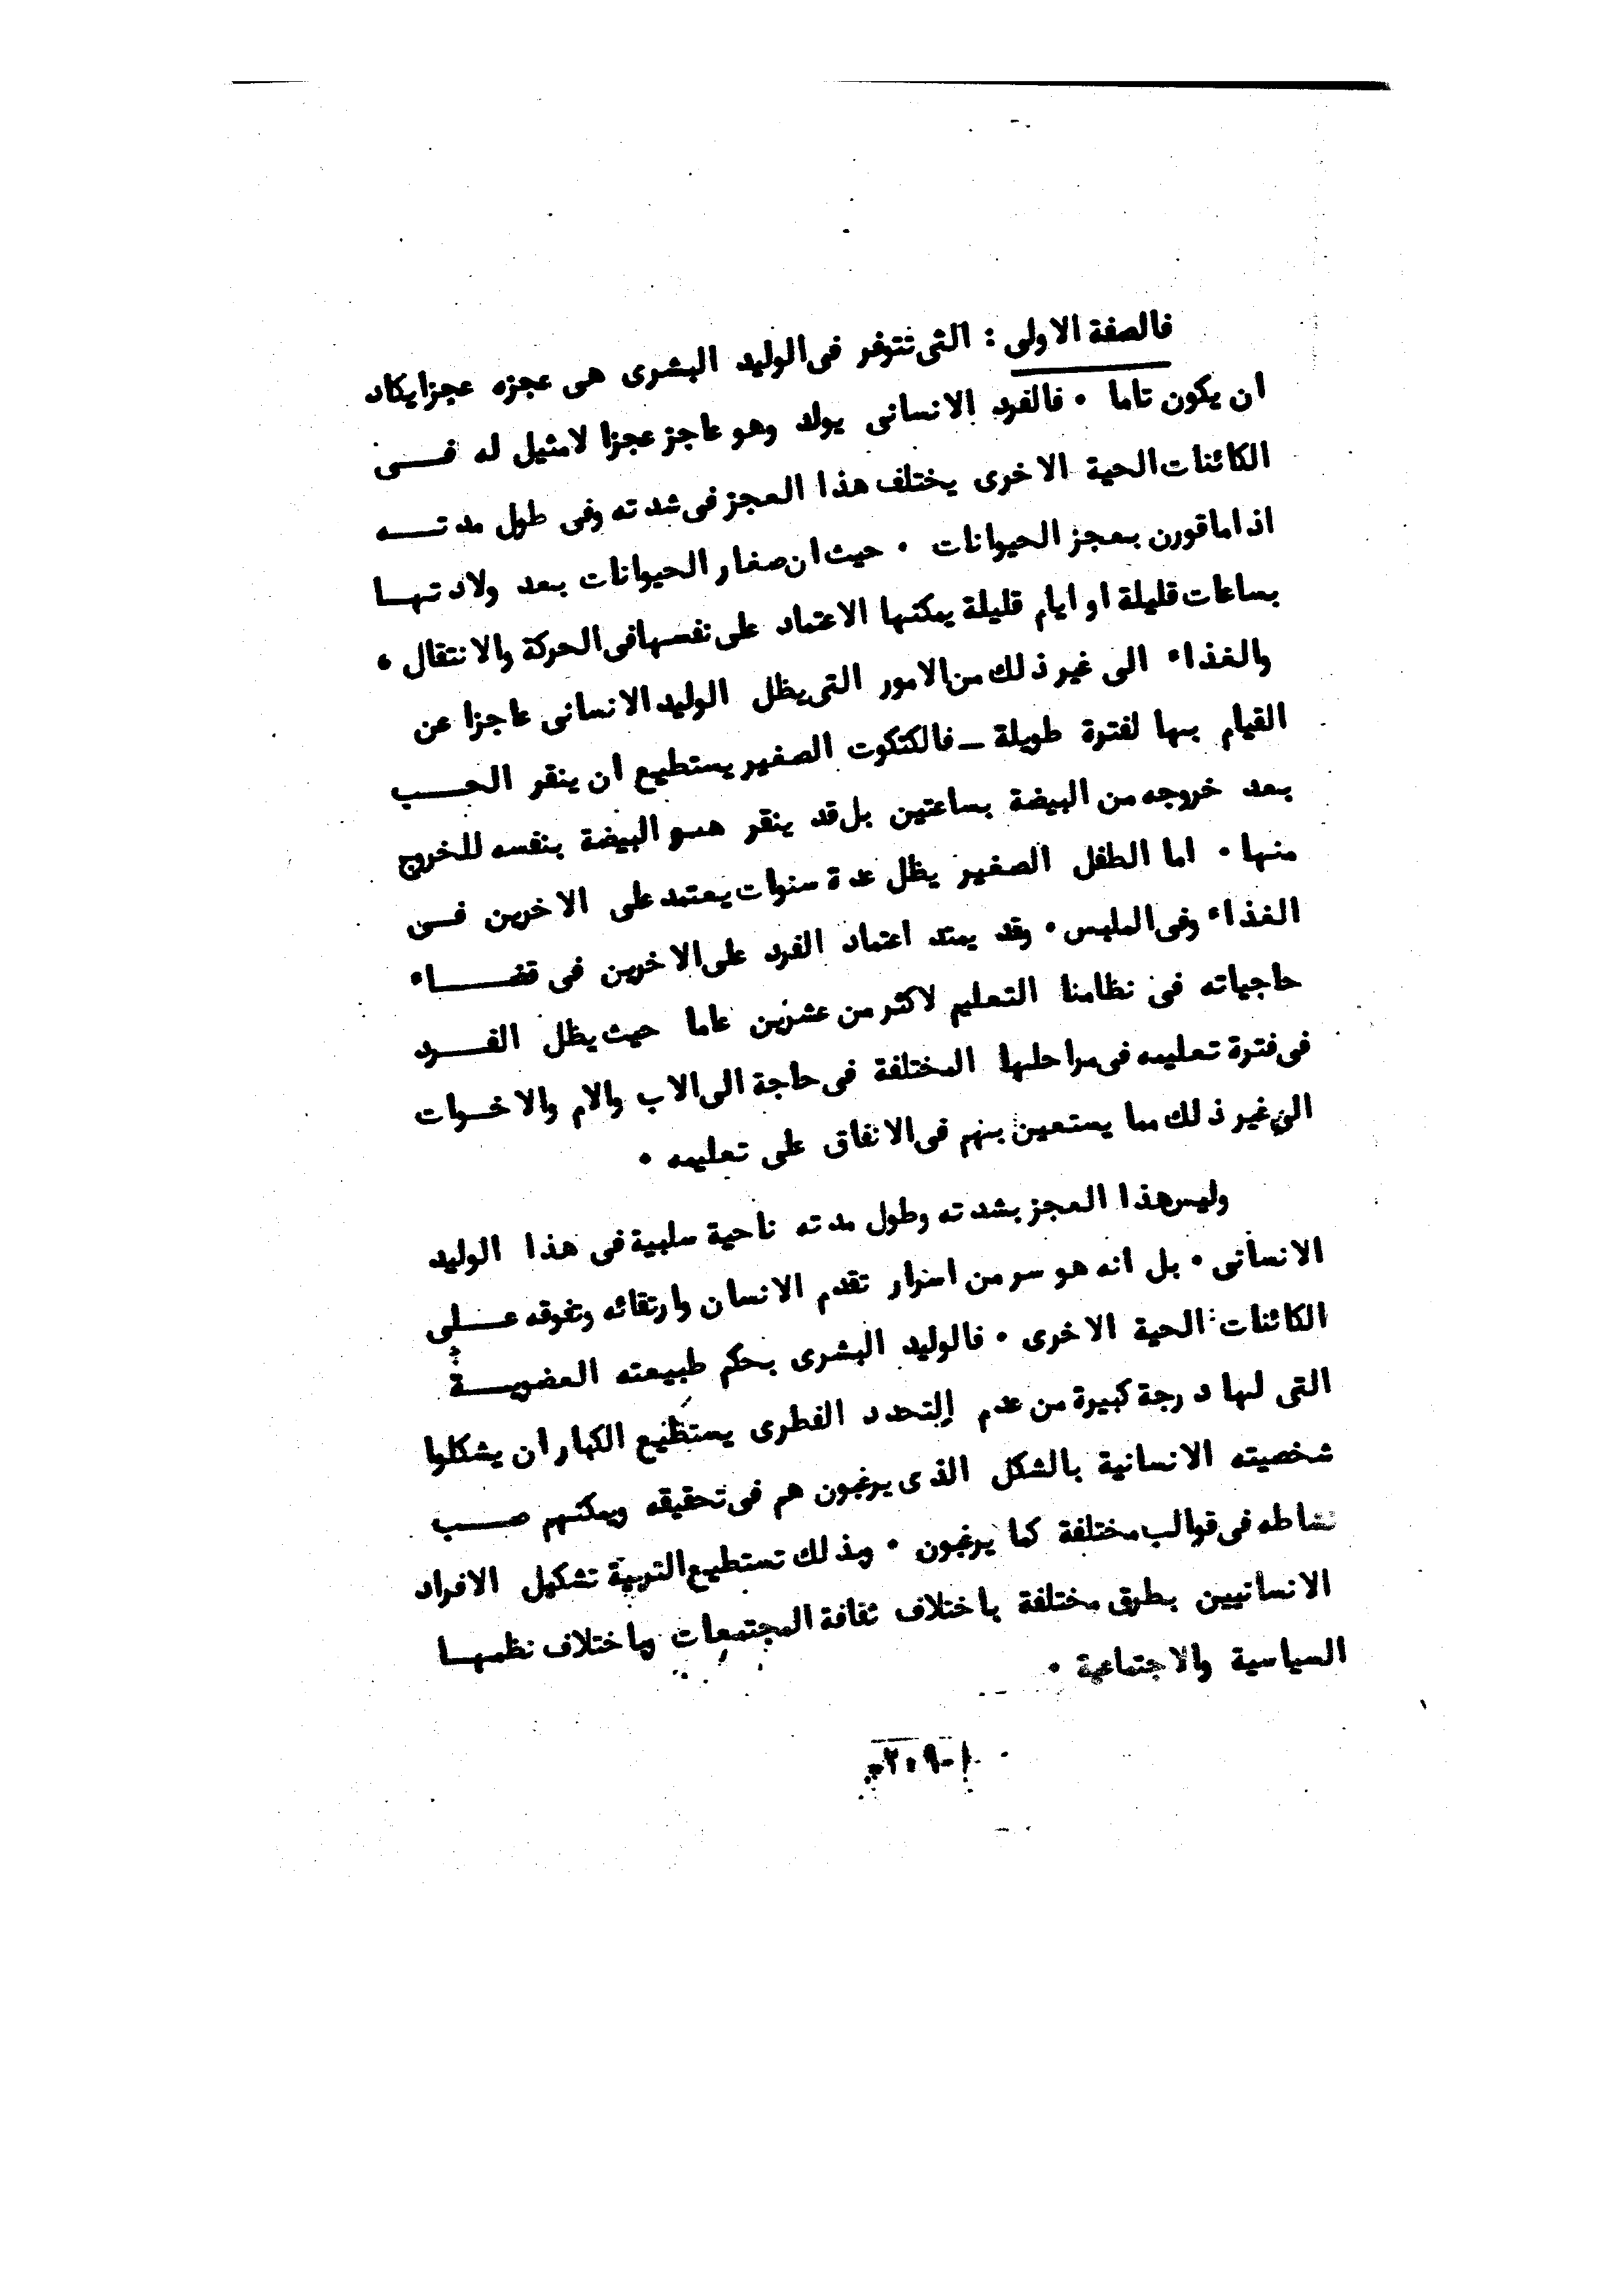 فالصفة الاولى : التى تتوفر فى الوليد البشرى هى عجزه عجزا يكاد
ان يكون تاما ٠ فالفرد الانسانى يولد وهو عاجز عجزا لامثيل له فــــى
الكائنات الحية الاخرى يختلف هذا العجز فى شدته وفى طول مدتــــه
اذا ماقورن بعجز الحيوانات ٠ حيث ان صغار الحيوانات بعد ولادتهــا
بساعات قليلة او ايام قليلة يمكنها الاعتماد على نفسها فى الحركة والانتقال ،
والغذاء الى غير ذلك من الامور التى يظل الوليد الانسانى عاجزا عن
القيام بها لفترة طويلة ــ فالكتكوت الصغير يستطيع ان ينقر الحـــب
بعد خروجه من البيضة بساعتين بل قد ينقر هــو البيضة بنفسه للخروج
منها ٠ اما الطفل الصغير يظل عدة سنوات يعتمد على الاخرين فــى
الغذاء وفى الملبس ٠ وقد يمتد اعتماد الفرد على الاخرين فى قضـــــاء
حاجياته فى نظامنا التعليم لاكثر من عشرين عاما حيث يظل الفــــرد
فى فترة تعليمه فى مراحلها المختلفة فى حاجة الى الاب والام والاخــوات
الى غير ذلك مما يستعين بهم فى الانفاق على تعليمه ٠
وليس هذا العجز بشدته وطول مدته ناحية سلبية فى هذا الوليد
الانسانى ٠ بل انه هو سر من اسرار تقدم الانسان وارتقائه وتفوقه عـــلى
الكائنات الحية الاخرى ٠ فالوليد البشرى بحكم طبيعته العضويــــة
التى لها درجة كبيرة من عدم التحدد الفطرى يستطيع الكبار ان يشكلوا
شخصيته الانسانية بالشكل الذى يرغبون هم فى تحقيقه ويمكنهم صـــب
نشاطه فى قوالب مختلفة كما يرغبون ٠ وبذلك تستطيع التربية تشكيل الافراد
الانسانيين بطرق مختلفة باختلاف ثقافة المجتمعات وباختلاف نظمهــا
السياسية والاجتماعية ٠